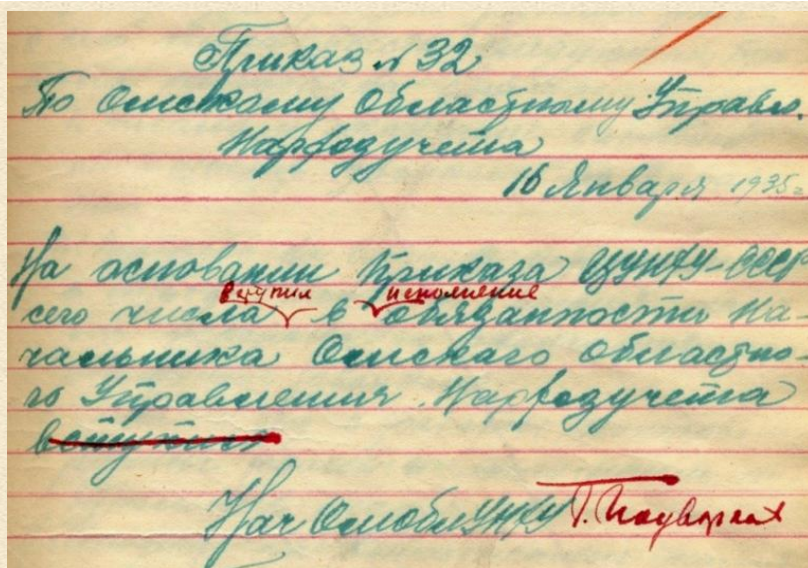 Приказ № 32
По Омскому Областному Управл.
Нархозучета
16 Января 1935г
На основании Приказа ЦУНХУ-СССР
вступил исполнение
сего числа в обязанности На-
чальника Омскаго Областно-
го Управления Нархозучета
вступил
Нач ОмоблУНХУ Г.